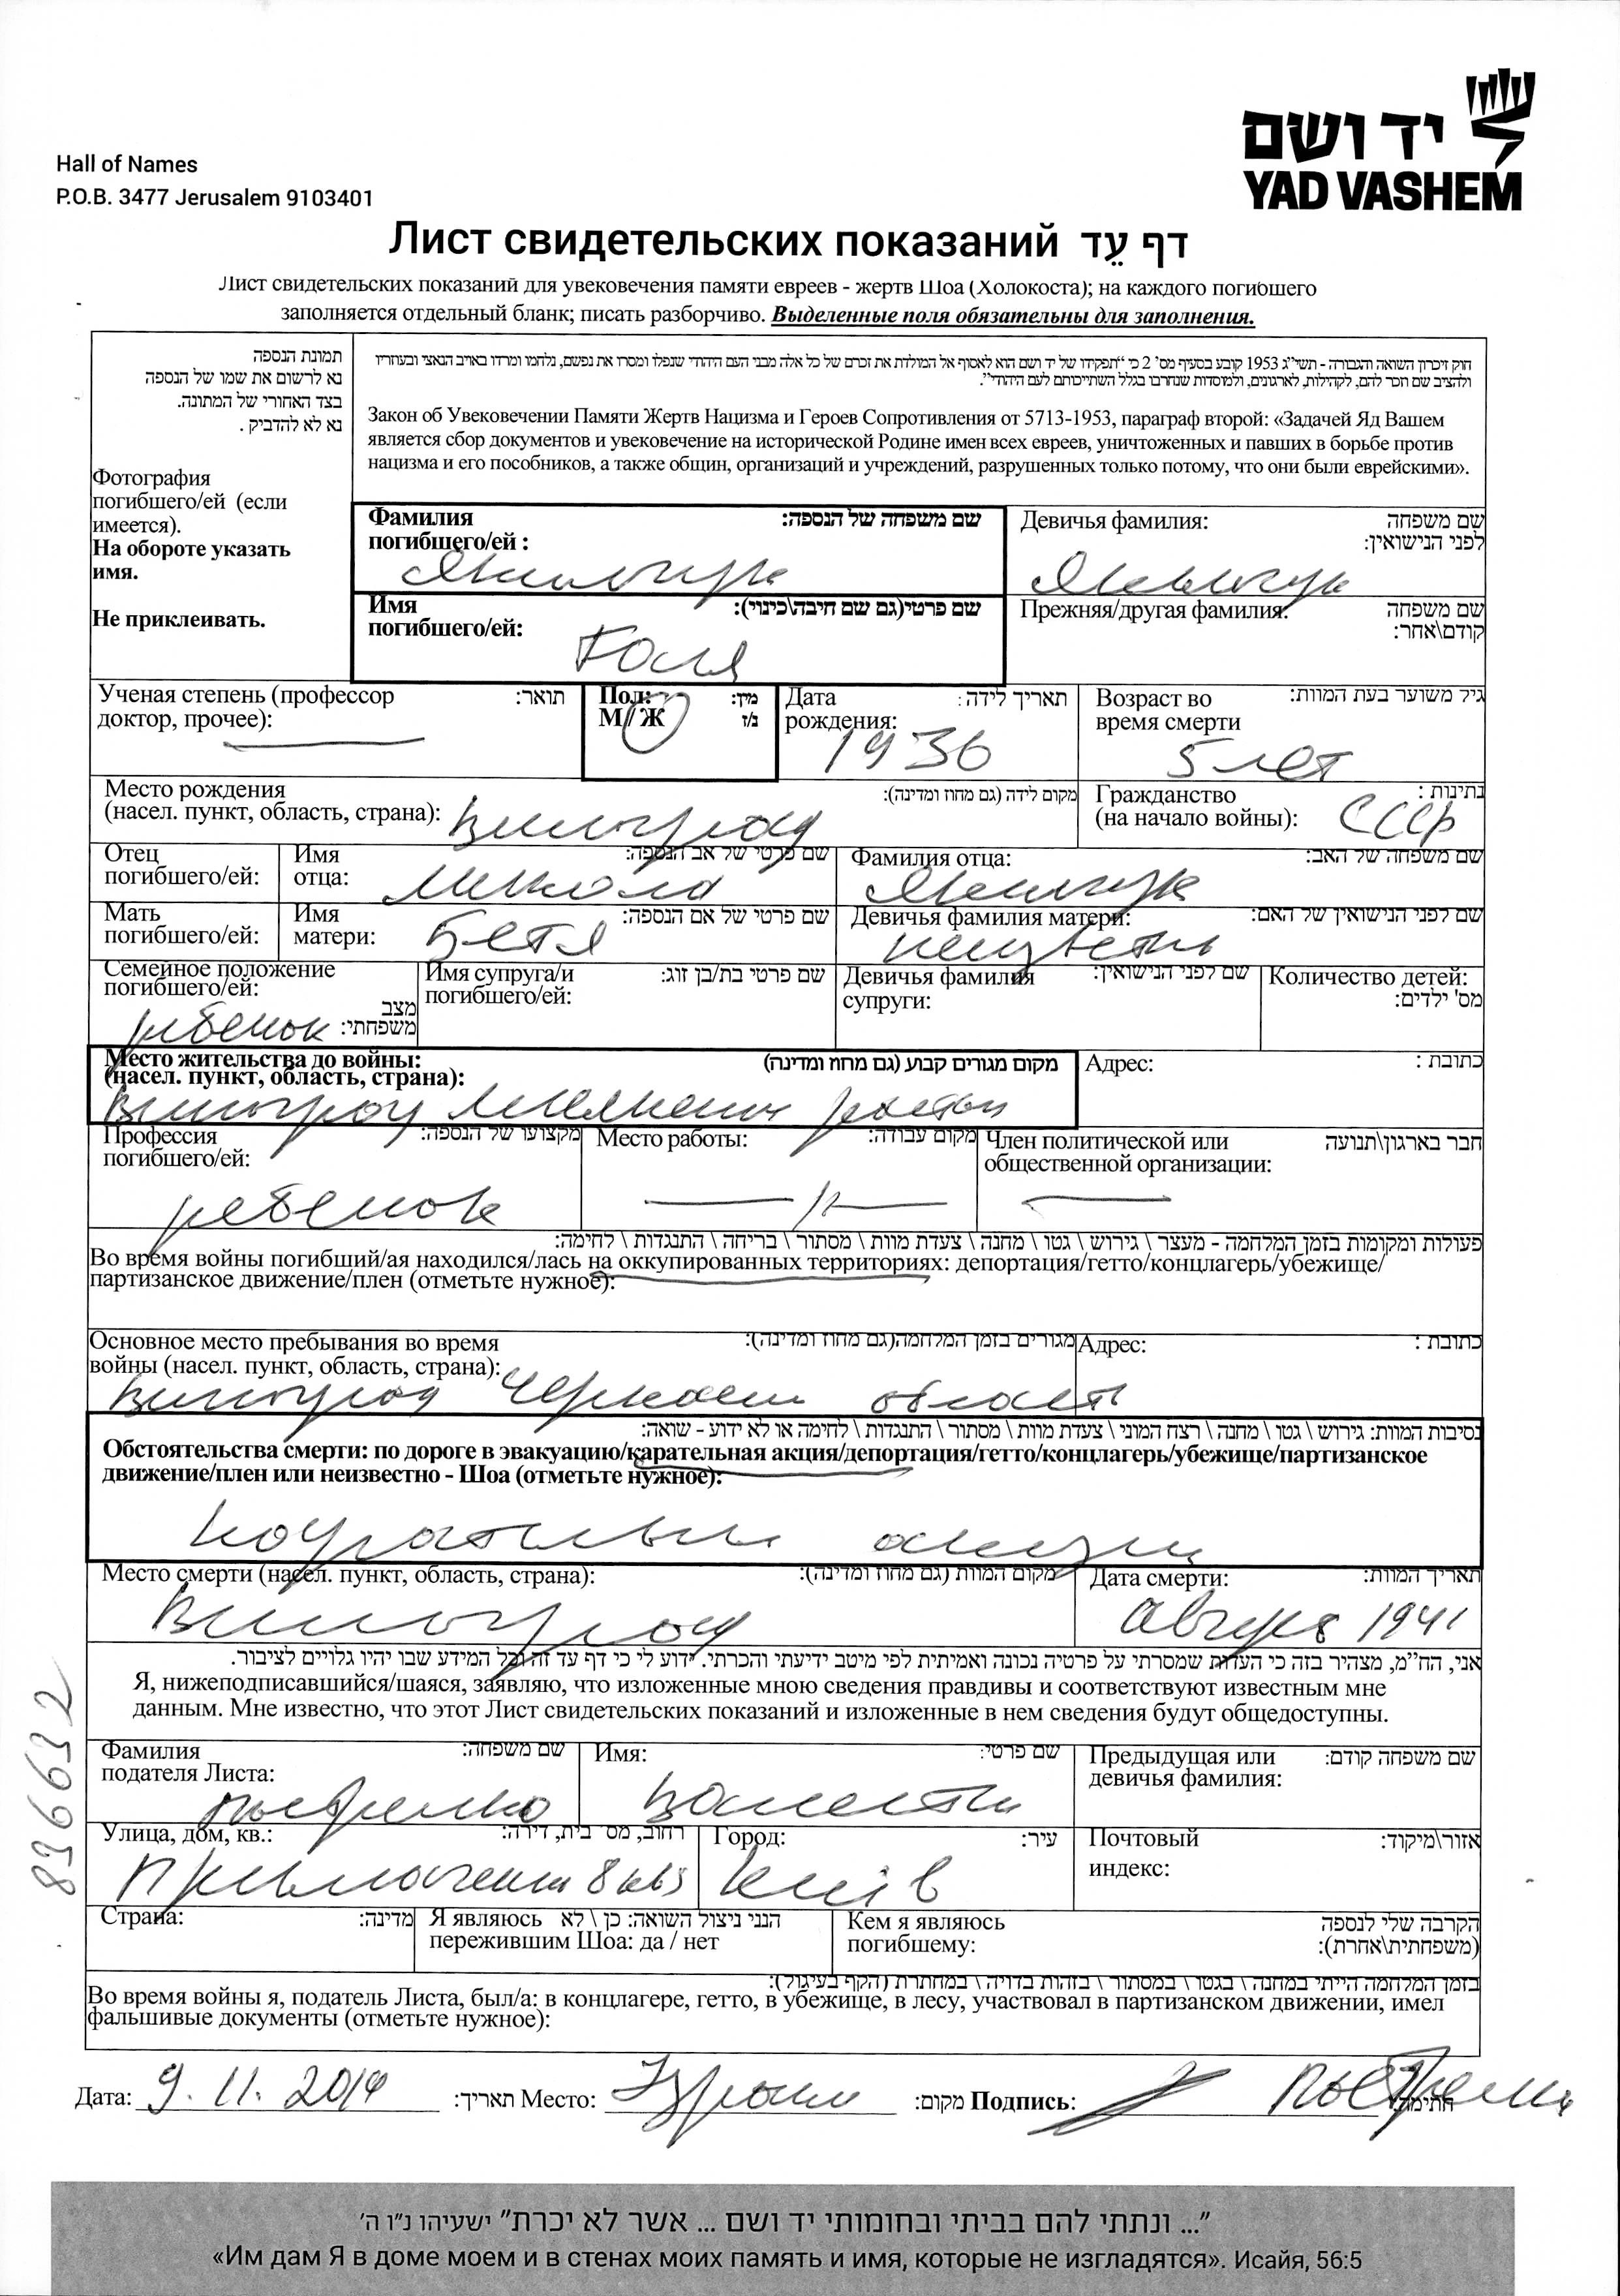 יד ושם
YAD VASHEM
Hall of Names
P.O.B. 3477 Jerusalem 9103401
Лист свидетельских показаний דף עֵד
Лист свидетельских показаний для увековечения памяти евреев - жертв Шоа (Холокоста); на каждого погибшего
заполняется отдельный бланк; писать разборчиво. Выделенные поля обязательны для заполнения.
תמונת הנספה
נא לרשום את שמו של הנספה
בצד האחורי של המתונה.
נא לא להדביק .
Фотография
погибшего/ей (если
имеется).
На обороте указать
имя.
Не приклеивать.
חוק זיכרון השואה והגבורה - תשי"ג 1953 קובע בסעיף מס' 2 כי "תפקידו של יד ושם הוא לאסוף אל המולדת את זכרם של כל אלה מבני העם היהודי שנפלו ומסרו את נפשם, נלחמו ומרדו באויב הנאצי ובעוזריו
ולהציב שם וזכר להם, לקהילות, לארגונים, ולמוסדות שנחרבו בגלל השתייכותם לעם היהודי".
Закон об Увековечении Памяти Жертв Нацизма и Героев Сопротивления от 5713-1953, параграф второй: «Задачей Яд Вашем
является сбор документов и увековечение на исторической Родине имен всех евреев, уничтоженных и павших в борьбе против
нацизма и его пособников, а также общин, организаций и учреждений, разрушенных только потому, что они были еврейскими».
Фамилия שם משפחה של הנספה:
погибшего/ей :
Девичья фамилия: שם משפחה
לפני הנישואין:
Имя שם פרטי(גם שם חיבה\כינוי):
погибшего/ей:
Галя
Прежняя/другая фамилия: שם משפחה
קודם\אחר:
Ученая степень (профессор תואר:
доктор, прочее):
Пол: מין:
М / Ж נ/ז
Дата תאריך לידה :
рождения:
1936
Возраст во גיל משוער בעת המוות:
время смерти
5 лет
Место рождения
(насел. пункт, область, страна): מקום לידה (גם מחוז ומדינה):
Виноград
Гражданство נתינות :
(на начало войны): СССР
Отец
погибшего/ей:
Имя שם פרטי של אב הנספה:
отца: Микола
Фамилия отца: שם משפחה של האב:
Мать
погибшего/ей:
Имя שם פרטי של אם הנספה:
матери: Бетя
Девичья фамилия матери: שם לפני הנישואין של האם:
Семейное положение
погибшего/ей:
מצב
משפחתי:
ребенок
Имя супруга/и שם פרטי בת/בן זוג:
погибшего/ей:
Девичья фамилия שם לפני הנישואין:
супруги:
Количество детей:
מס' ילדים:
Место жительства до войны: מקום מגורים קבוע (גם מחוז ומדינה)
(насел. пункт, область, страна):
Виноград
Адрес: כתובת :
Профессия מקצועו של הנספה:
погибшего/ей:
ребенок
Место работы: מקום עבודה:
Член политической или חבר בארגון\תנועה
общественной организации:
פעולות ומקומות בזמן המלחמה - מעצר \ גירוש \ גטו \ מחנה \ צעדת מוות \ מסתור \ בריחה \ התנגדות \ לחימה:
Во время войны погибший/ая находился/лась на оккупированных территориях: депортация/гетто/концлагерь/убежище/
партизанское движение/плен (отметьте нужное):
Основное место пребывания во время מגורים בזמן המלחמה(גם מחוז ומדינה):
войны (насел. пункт, область, страна):
Виноград область
Адрес: כתובת :
נסיבות המוות: גירוש \ גטו \ מחנה \ רצח המוני \ צעדת מוות \ מסתור \ התנגדות \ לחימה או לא ידוע - שואה:
Обстоятельства смерти: по дороге в эвакуацию/карательная акция/депортация/гетто/концлагерь/убежище/партизанское
движение/плен или неизвестно - Шоа (отметьте нужное):
Место смерти (насел. пункт, область, страна): מקום המוות (גם מחוז ומדינה):
Виноград
Дата смерти: תאריך המוות:
1941
אני, הח"מ, מצהיר בזה כי העדות שמסרתי על פרטיה נכונה ואמיתית לפי מיטב ידיעתי והכרתי. ידוע לי כי דף עד זה וכל המידע שבו יהיו גלויים לציבור.
Я, нижеподписавшийся/шаяся, заявляю, что изложенные мною сведения правдивы и соответствуют известным мне
данным. Мне известно, что этот Лист свидетельских показаний и изложенные в нем сведения будут общедоступны.
Фамилия שם משפחה:
подателя Листа:
Имя: שם פרטי:
Предыдущая или שם משפחה קודם:
девичья фамилия:
Улица, дом, кв.: רחוב, מס' בית, דירה:
Город: עיר:
Київ
Почтовый אזור\מיקוד:
индекс:
Страна: מדינה:
Я являюсь הנני ניצול השואה: כן \ לא
пережившим Шоа: да / нет
Кем я являюсь הקרבה שלי לנספה
погибшему: (משפחתית\אחרת):
בזמן המלחמה הייתי במחנה \ בגטו \ במסתור \ בזהות בדויה \ במחתרת (הקף בעיגול):
Во время войны я, податель Листа, был/а: в концлагере, гетто, в убежище, в лесу, участвовал в партизанском движении, имел
фальшивые документы (отметьте нужное):
Дата: 9. 11. 2014 תאריך: Место: מקום: Подпись: חתימה:
"... ונתתי להם בביתי ובחומותי יד ושם ... אשר לא יכרת" ישעיהו נ"ו ה'
«Им дам Я в доме моем и в стенах моих память и имя, которые не изгладятся». Исайя, 56:5